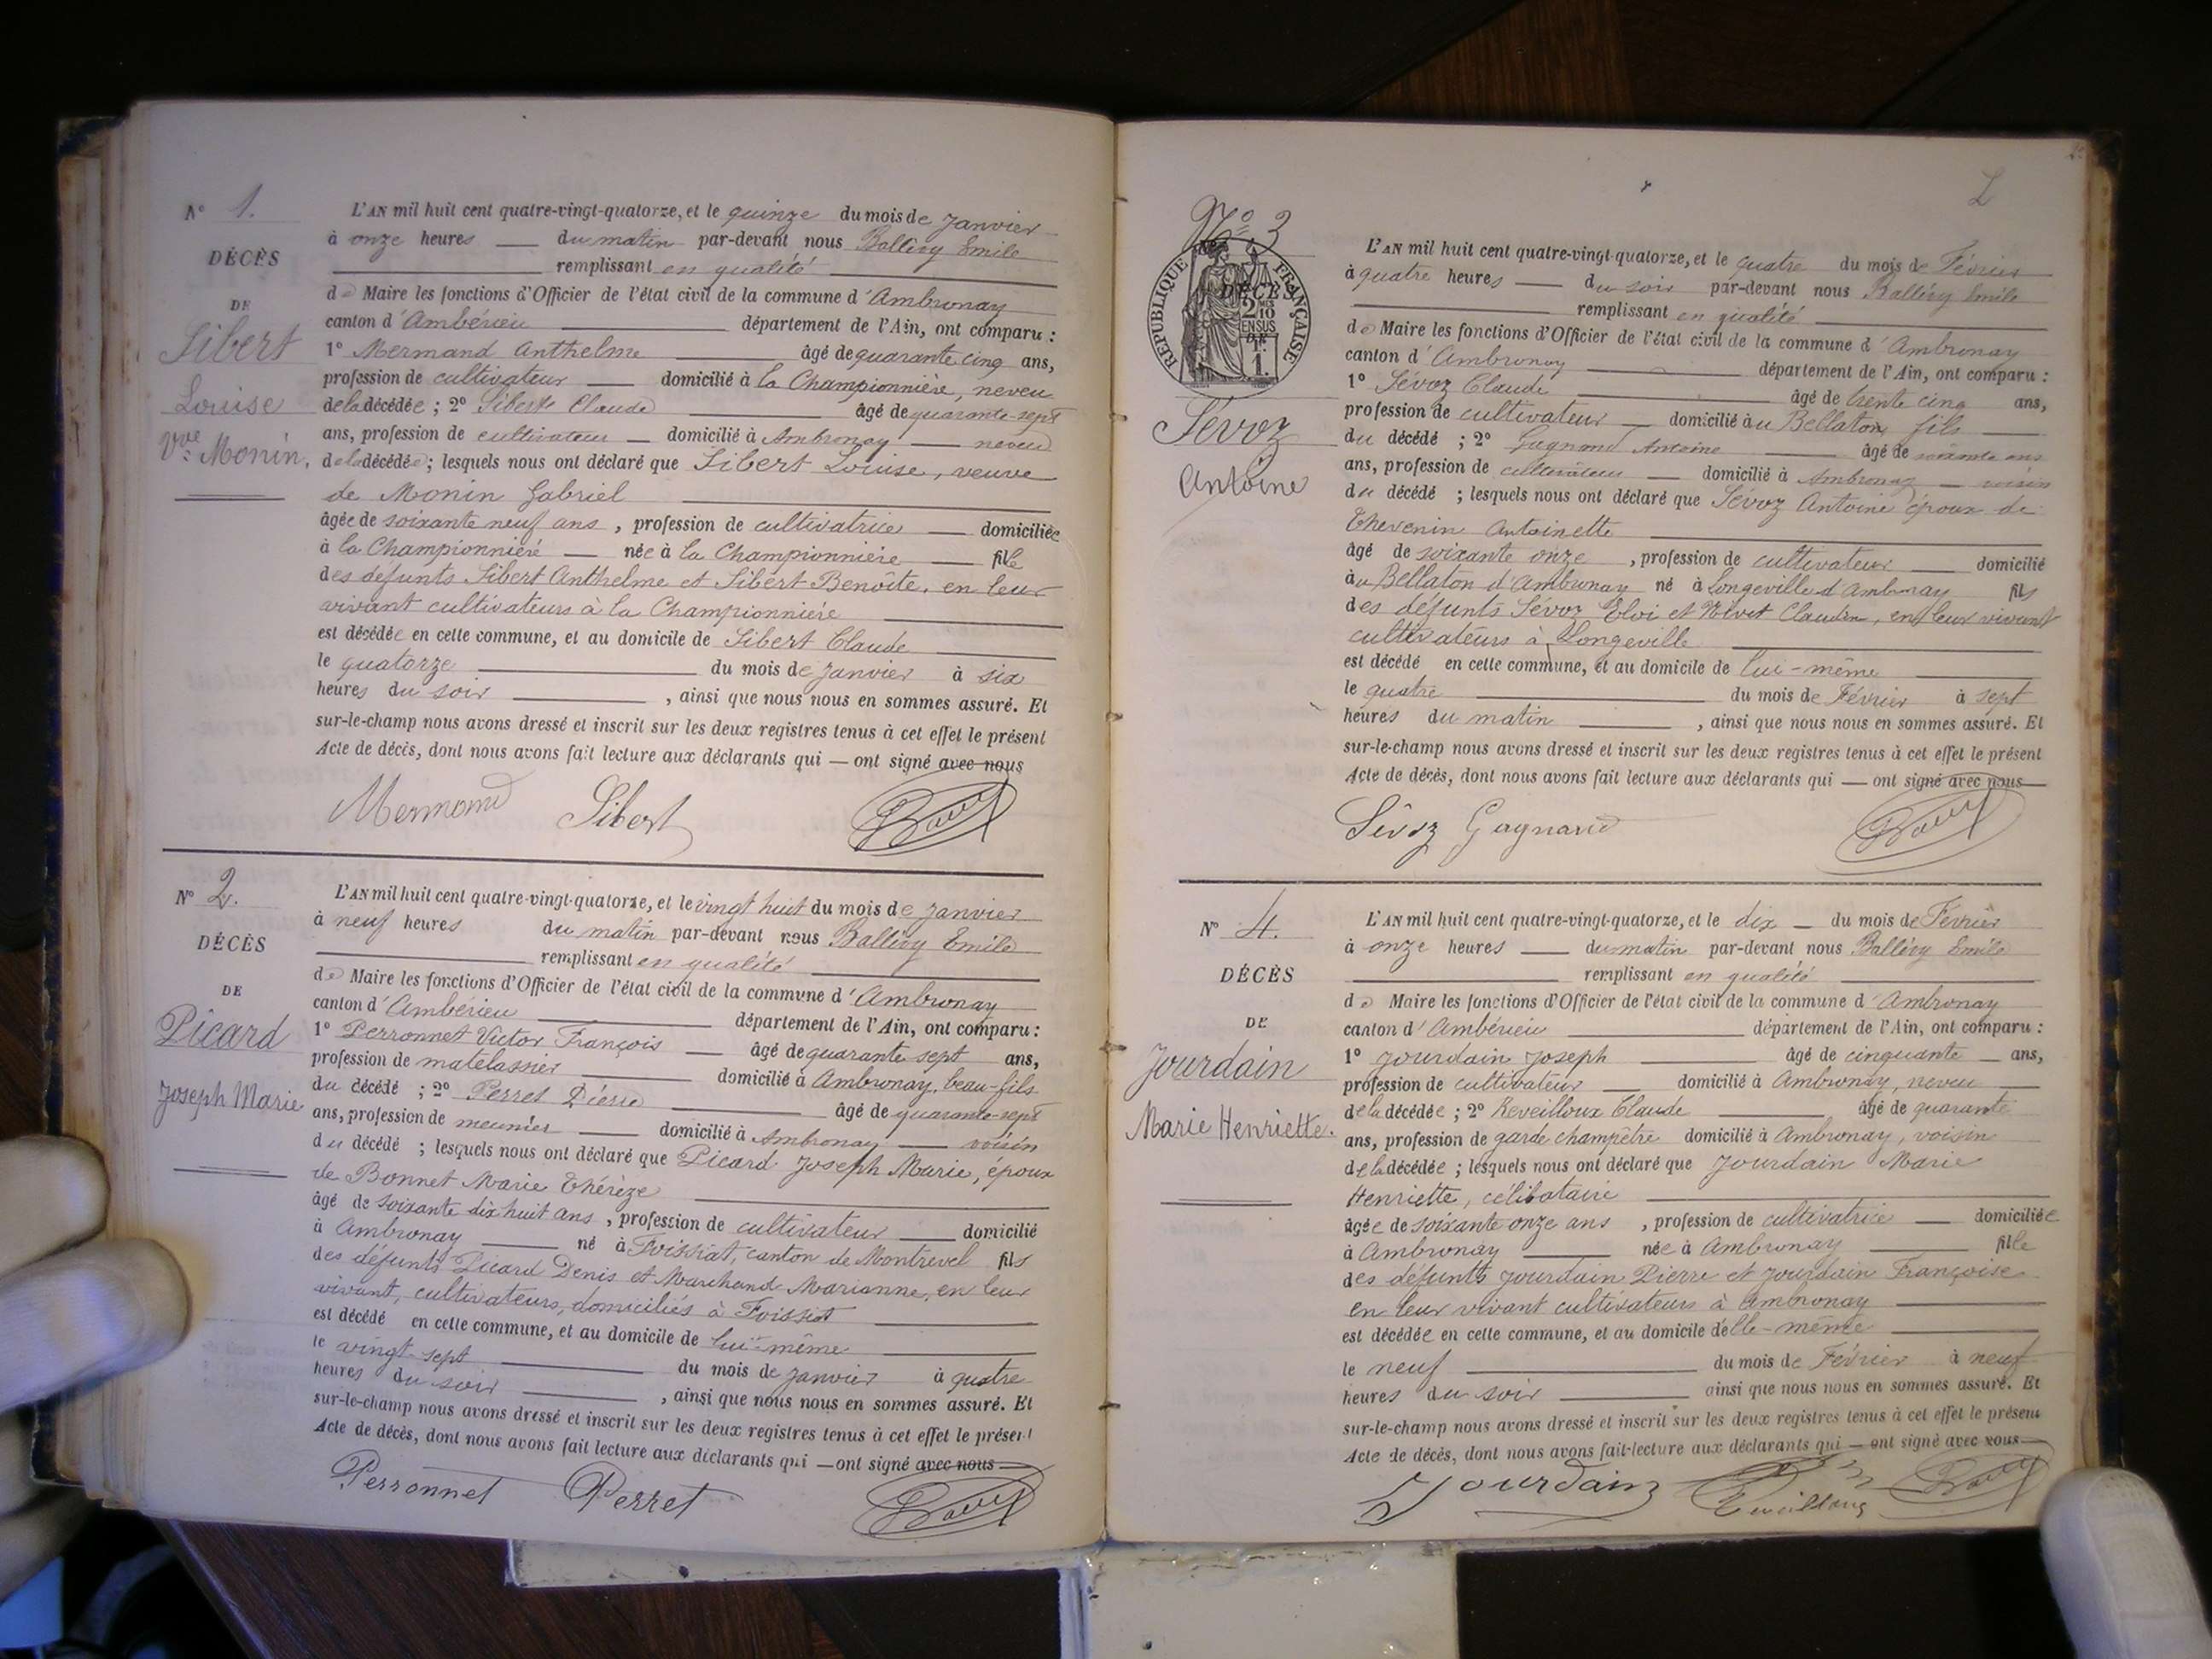 N° 1.
DÉCÈS
DE
Sibert
Louise
Vve Monin.
L'AN mil huit cent quatre-vingt-quatorze, et le quinze du mois de Janvier
à onze heures du matin par-devant nous Ballivy Emile
remplissant en qualité
de Maire les fonctions d'Officier de l'état civil de la commune d'Ambronay
canton d'Ambérieu département de l'Ain, ont comparu :
1° Mermand Anthelme âgé de quarante cinq ans,
profession de cultivateur domicilié à la Championnière, neveu
de la décédée ; 2° Sibert Claude âgé de quarante-sept
ans, profession de cultivateur domicilié à Ambronay neveu
de la décédée ; lesquels nous ont déclaré que Sibert Louise, veuve
de Monin Gabriel
âgée de soixante neuf ans, profession de cultivatrice domiciliée
à la Championnière née à la Championnière fille
des défunts Sibert Anthelme et Sibert Benoîte, en leur
vivant cultivateurs à la Championnière
est décédée en cette commune, et au domicile de Sibert Claude
le quatorze du mois de Janvier à six
heures du soir , ainsi que nous nous en sommes assuré. Et
sur-le-champ nous avons dressé et inscrit sur les deux registres tenus à cet effet le présent
Acte de décès, dont nous avons fait lecture aux déclarants qui — ont signé avec nous
Mermand Sibert
N° 2.
DÉCÈS
DE
Picard
Joseph Marie
L'AN mil huit cent quatre-vingt-quatorze, et le vingt huit du mois de Janvier
à neuf heures du matin par-devant nous Ballivy Emile
remplissant en qualité
de Maire les fonctions d'Officier de l'état civil de la commune d'Ambronay
canton d'Ambérieu département de l'Ain, ont comparu :
1° Perronnet Victor François âgé de quarante sept ans,
profession de matelassier domicilié à Ambronay, beau-fils
du décédé ; 2° Perret Pierre âgé de quarante-sept
ans, profession de meunier domicilié à Ambronay voisin
du décédé ; lesquels nous ont déclaré que Picard Joseph Marie, époux
de Bonnet Marie Thérèze
âgé de soixante dix huit ans, profession de cultivateur domicilié
à Ambronay né à Foissiat, canton de Montrevel fils
des défunts Picard Denis et Marchand Marianne, en leur
vivant, cultivateurs, domiciliés à Foissiat
est décédé en cette commune, et au domicile de lui-même
le vingt-sept du mois de Janvier à quatre
heures du soir , ainsi que nous nous en sommes assuré. Et
sur-le-champ nous avons dressé et inscrit sur les deux registres tenus à cet effet le présent
Acte de décès, dont nous avons fait lecture aux déclarants qui — ont signé avec nous
Perronnet Perret
2
N° 3
RÉPUBLIQUE FRANÇAISE
DÉCÈS
2/10 EN SUS
1.
Sévoz
Antoine
L'AN mil huit cent quatre-vingt-quatorze, et le quatre du mois de Février
à quatre heures du soir par-devant nous Ballivy Emile
remplissant en qualité
de Maire les fonctions d'Officier de l'état civil de la commune d'Ambronay
canton d'Ambronay département de l'Ain, ont comparu :
1° Sévoz Claude âgé de trente cinq ans,
profession de cultivateur domicilié au Bellaton, fils
du décédé ; 2° Gagnard Antoine âgé de soixante ans
ans, profession de cultivateur domicilié à Ambronay voisin
du décédé ; lesquels nous ont déclaré que Sévoz Antoine époux de
Thevenin Antoinette
âgé de soixante onze , profession de cultivateur domicilié
au Bellaton d'Ambronay né à Longeville d'Ambronay fils
des défunts Sévoz Eloi et Claudine, en leur vivant
cultivateurs à Longeville
est décédé en cette commune, et au domicile de lui-même
le quatre du mois de Février à sept
heures du matin , ainsi que nous nous en sommes assuré. Et
sur-le-champ nous avons dressé et inscrit sur les deux registres tenus à cet effet le présent
Acte de décès, dont nous avons fait lecture aux déclarants qui — ont signé avec nous
Sévoz Gagnard
N° 4.
DÉCÈS
DE
Jourdain
Marie Henriette.
L'AN mil huit cent quatre-vingt-quatorze, et le dix du mois de Février
à onze heures du matin par-devant nous Ballivy Emile
remplissant en qualité
de Maire les fonctions d'Officier de l'état civil de la commune d'Ambronay
canton d'Ambérieu département de l'Ain, ont comparu :
1° Jourdain Joseph âgé de cinquante ans,
profession de cultivateur domicilié à Ambronay, neveu
de la décédée ; 2° Reveilloux Claude âgé de quarante
ans, profession de garde champêtre domicilié à Ambronay, voisin
de la décédée ; lesquels nous ont déclaré que Jourdain Marie
Henriette, célibataire
âgée de soixante onze ans , profession de cultivatrice domiciliée
à Ambronay née à Ambronay fille
des défunts Jourdain Pierre et Jourdain Françoise
en leur vivant cultivateurs à Ambronay
est décédée en cette commune, et au domicile d'elle-même
le neuf du mois de Février à neuf
heures du soir ainsi que nous nous en sommes assuré. Et
sur-le-champ nous avons dressé et inscrit sur les deux registres tenus à cet effet le présent
Acte de décès, dont nous avons fait-lecture aux déclarants qui — ont signé avec nous
Jourdain Reveilloux